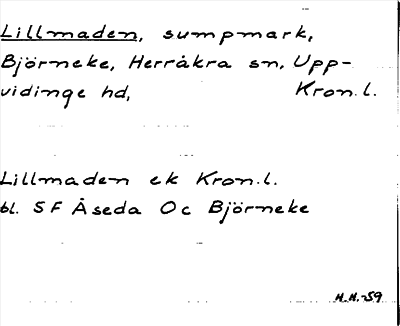 Lillmaden, sumpmark,
Björneke, Herråkra sn, Upp-
vidinge hd, Kron. l.
Lillmaden ek Kron. l.
bl. 5 F Åseda Oc Björneke
H.H.-59